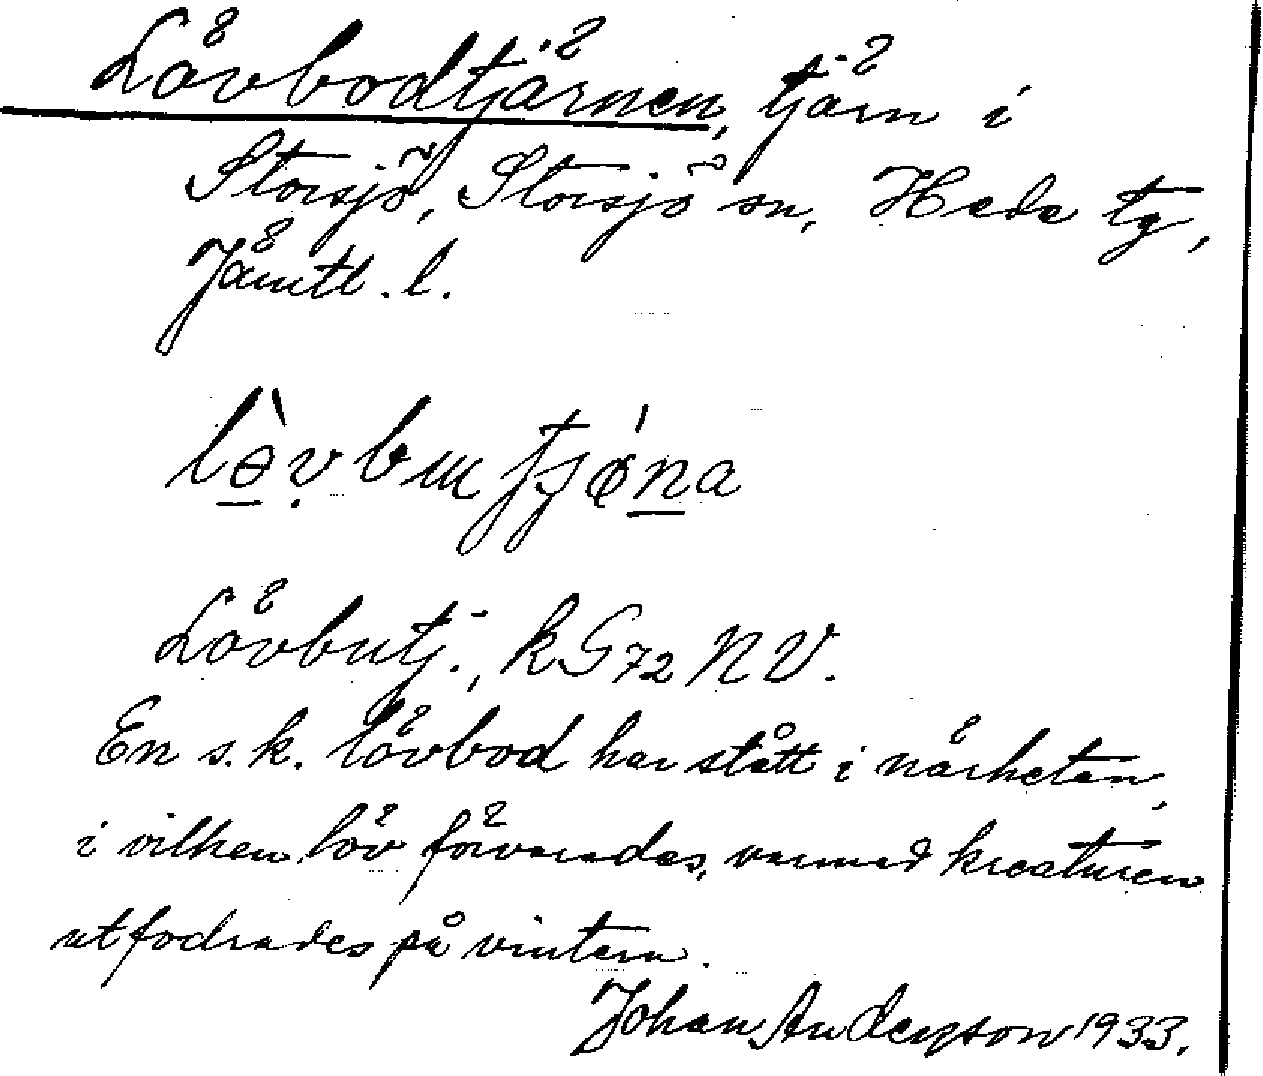 Lövbodtjärnen, tjärn i
Storsjö, Storsjö sn, Hede tg,
Jämtl. l.
lə̀v̥bɯtjǿna
Lövbutj., kG72 NV.
En s.k. lövbod har stått i närheten,
i vilken löv förvarades, varmed kreaturen
utfodrades på vintern.
Johan Anderson 1933.